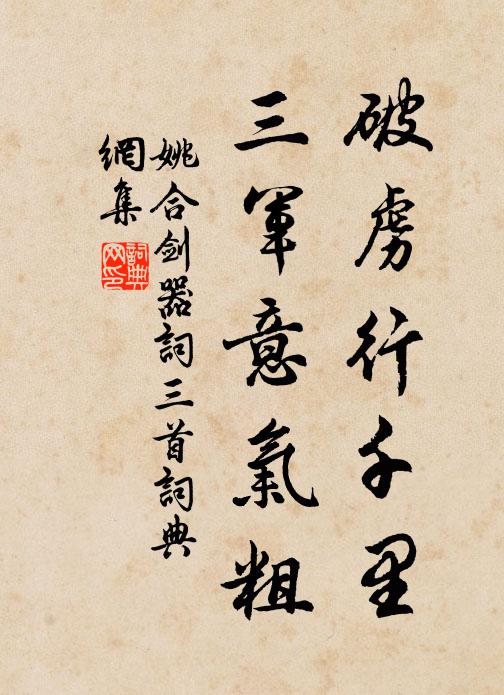 破虜行千里
三軍意氣粗
姚合劍器詞三首詞典
網集
詞典
网印